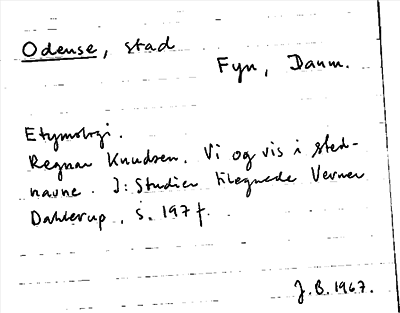 Odense, stad
Fyn, Danm.
Etymologi.
Regnar Knudsen. Vi og vis i sted-
navne. I: Studier tilegnede Verner
Dahlerup, s. 197 f.
J.B. 1967.